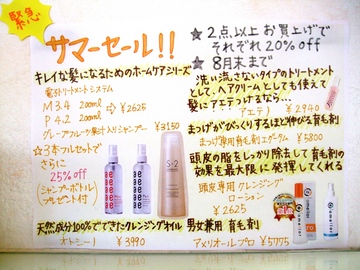 緊急
サマーセール!!
キレイな髪になるためのホームケアシリーズ
電子トリートメントシステム
M3.4 200ml
P4.2 200ml
⇒ ¥2625
グレープフルーツ果汁入りシャンプー ¥3150
☆3本フルセットで
さらに
25%off
(シャンプーボトル
プレゼント付)
S-2
天然成分100%でできたクレンジングオイル
オトミー1 ¥3990
★2点以上お買上げで
それぞれ20%off
★8月末まで
洗い流さないタイプのトリートメント
として、ヘアクリームとしても使えて
髪にアミノつけるなら…
¥2940
まつげがびっくりするほど伸びる育毛剤
まつげ専用育毛剤 ¥5800
頭皮の脂をしっかり除去して育毛剤の
効果を最大限に発揮してくれる
頭皮専用クレンジング
ローション
¥2625
男女兼用 育毛剤
アメリオールプロ ¥5775